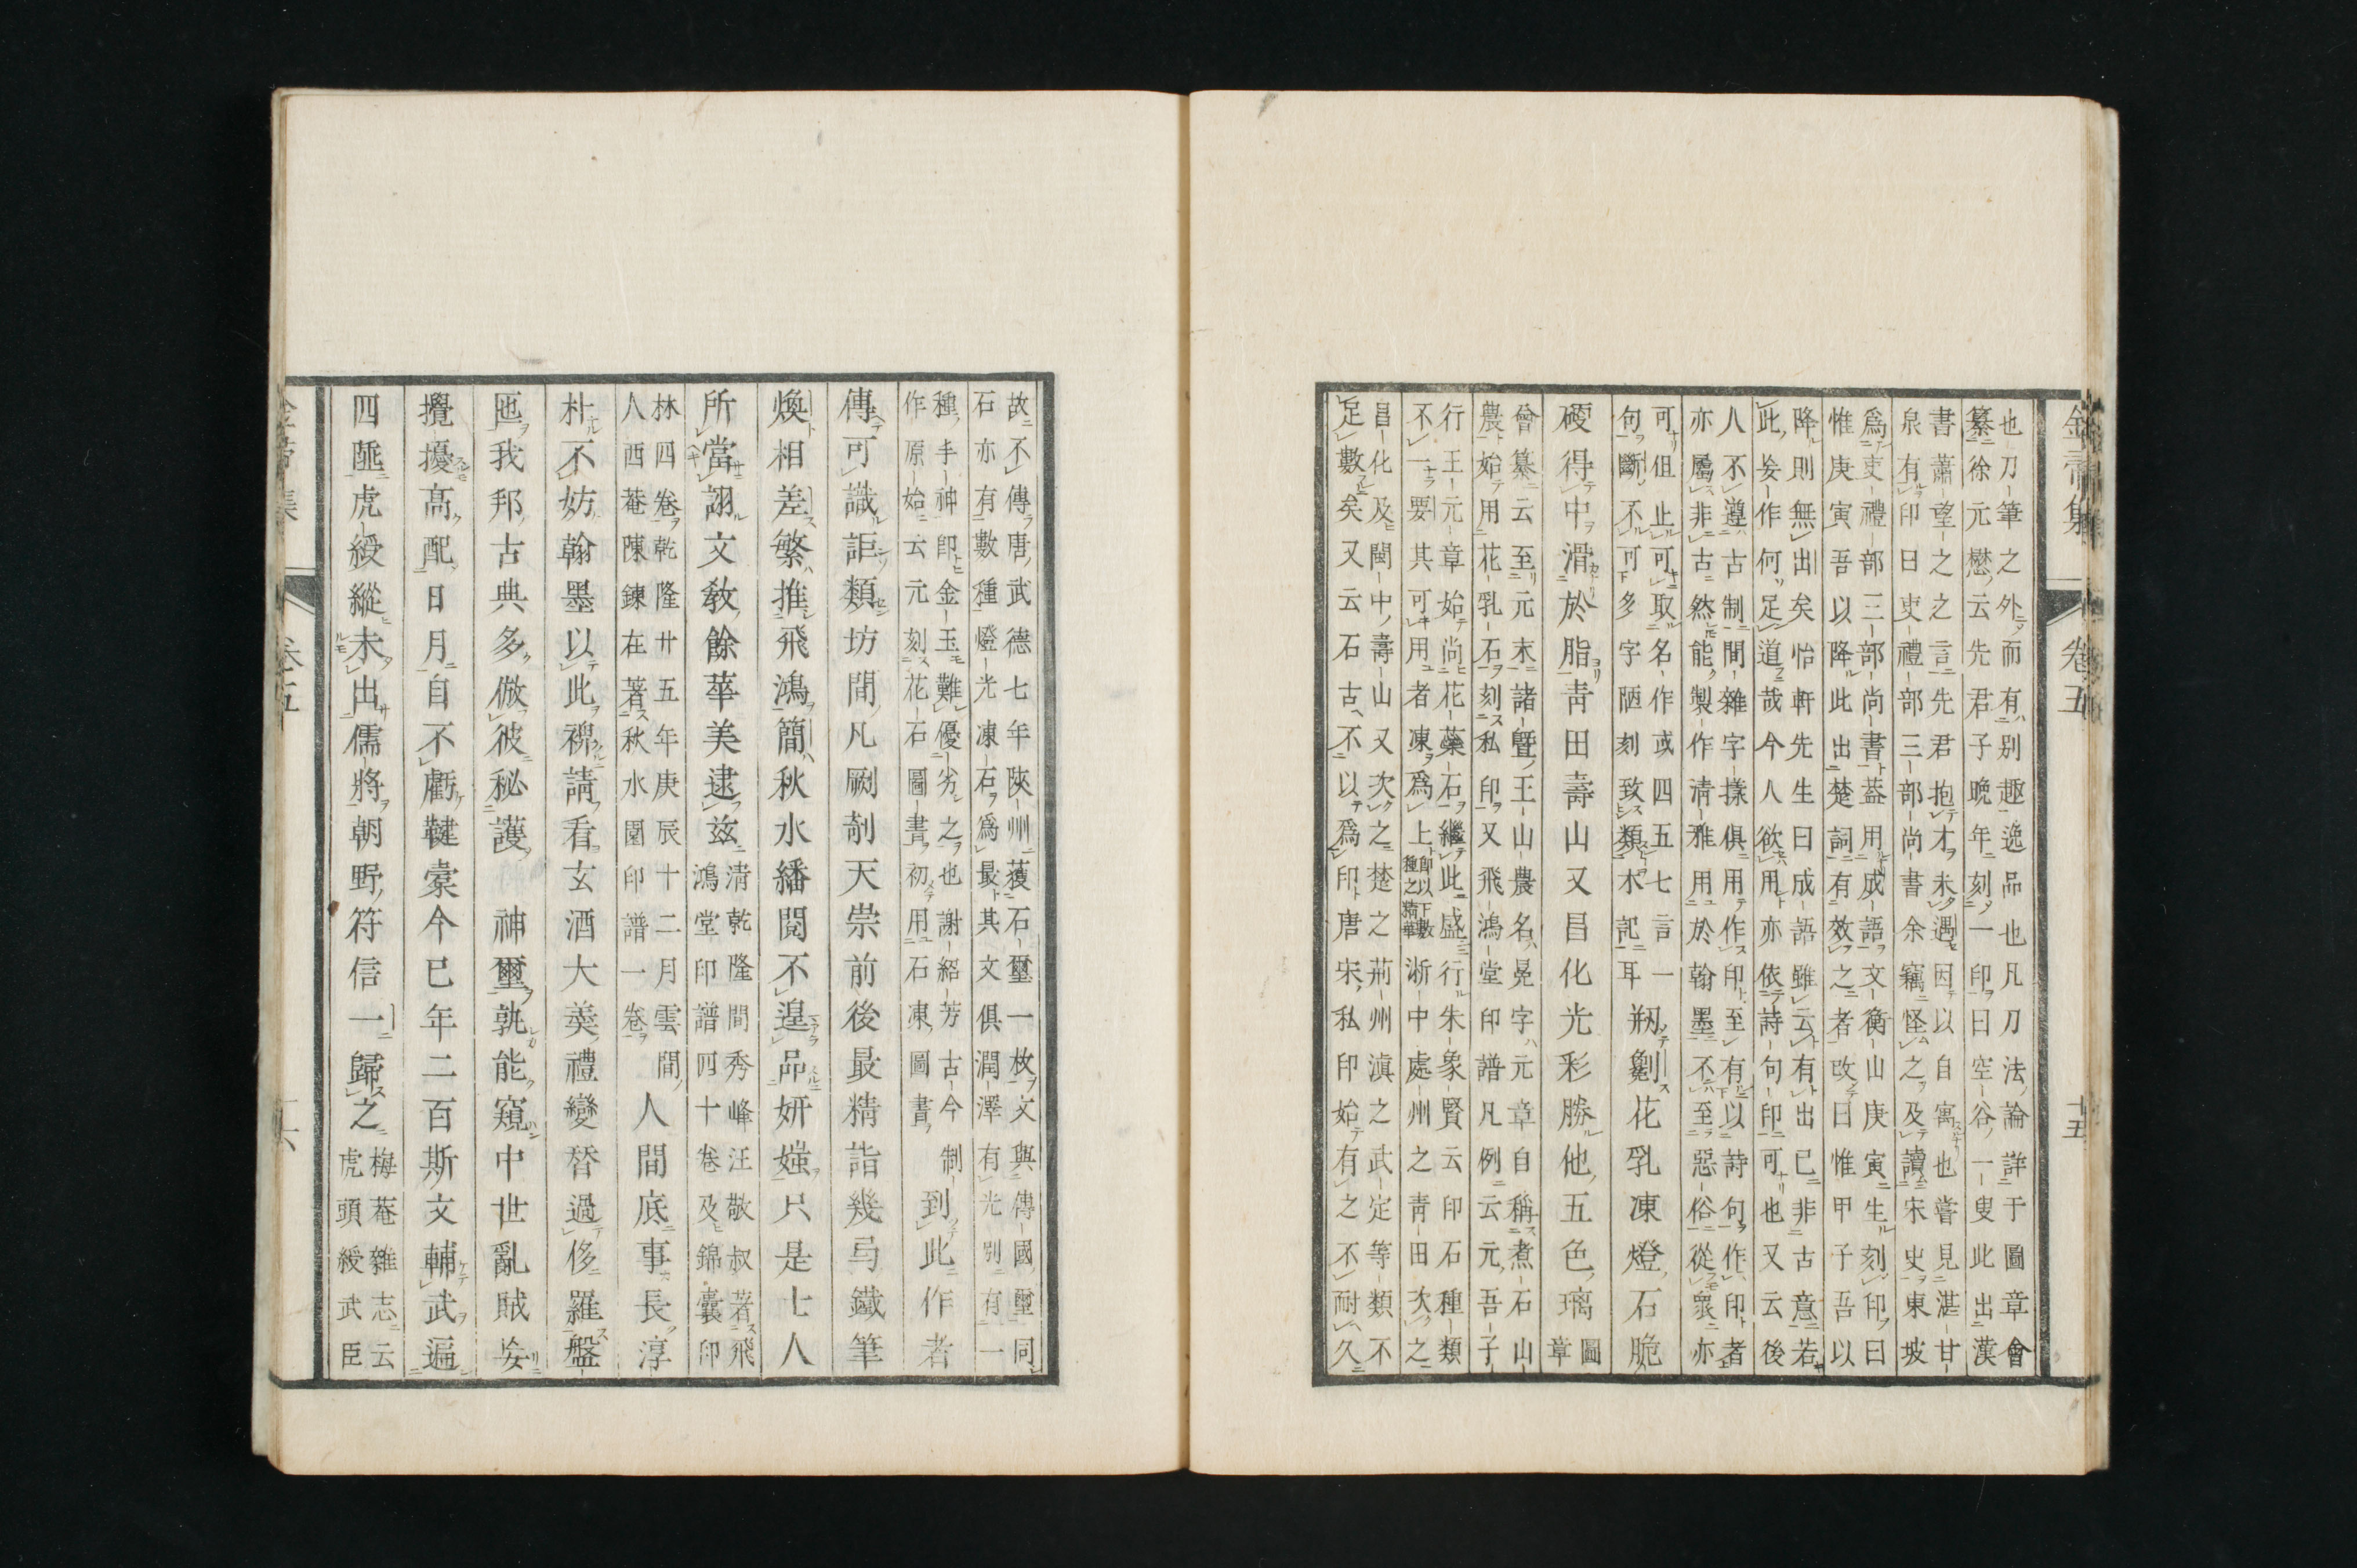 金帚集 卷五 十五
也刀筆之外而有別趣逸品也凡刀法論詳于圖章會
纂徐元懋云先君子晚年刻一印曰空谷一叟此出漢
書蕭望之之言先君抱才未遇因以自寓也嘗見湛甘
泉有印曰吏禮部三部尚書余竊怪之及讀宋史東坡
爲吏禮部三部尚書葢用成語文衡山庚寅生刻印曰
惟庚寅吾以降此出楚詞有效之者改曰惟甲子吾以
降則無出矣怡軒先生曰成語雖云有出已非古意若
此妄作何足道哉今人欲用亦依詩句印可也又云後
人不遵古制間雜字㨾俱用作印至有以詩句作印者
亦屬非古然能製作清雅用於翰墨不至惡俗從衆亦
可但止可取名作或四五七言一
句斷不可多字陋刻致類木記耳
剏劖花乳凍燈石脆
硬得中滑於脂青田壽山又昌化光彩勝他五色璃圖章
會纂云至元末諸曁王山農名冕字元章自稱煮石山
農始用花乳石刻私印又飛鴻堂印譜凡例云元吾子
行王元章始尚花藥石繼此盛行朱象賢云印石種類
不一要其可用者凍爲上卽以下數種之精華浙中處州之青田次之
昌化及閩中壽山又次之楚之荊州滇之武定等類不
足數矣又云石古不以爲印唐宋私印始有之不耐久
故不傳唐武德七年陝州獲石璽一枚文與傳國璽同
石亦有數種燈光凍石爲最其文俱潤澤有光別有一
種手神印金玉難優劣之也謝紹芳古今制
作原始云元刻花石圖書初用石凍圖書
到此作者
傳可識詎類坊間凡劂剞天崇前後最精詣幾弓鐵筆
煥相差繁推飛鴻簡秋水繙閱不遑品妍媸只是七人
所當詡文敎餘華美逮茲
清乾隆間秀峰汪敬叔著飛
鴻堂印譜四十卷及錦囊印
林四卷乾隆廿五年庚辰十二月雲間
人西菴陳鍊在著秋水園印譜一卷
人間底事長淳
朴不妨翰墨以此裨請看玄酒大羹禮變替過侈羅盤
匜我邦古典多倣彼秘護 神璽孰能窺中世亂賊妄
攪擾高配日月自不虧鞬櫜今已年二百斯文輔武遍
四陲虎綬縱未出儒將朝野符信一歸之
梅菴雜志云
虎頭綬武臣